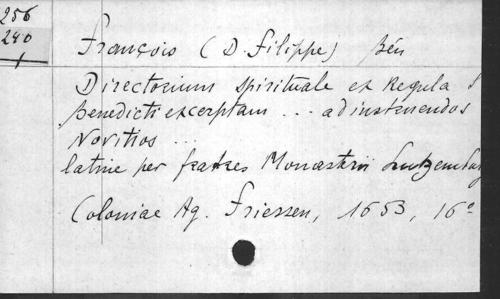 256
240
1
François (D. Filippe) Bén
Directorium spirituale ex Regula S
Benedicti excerptam ... ad instruendos
Novitios ...
latine per fratres Monasterii Lutzemburg
Coloniae Ag. Friessen, 1653, 16°